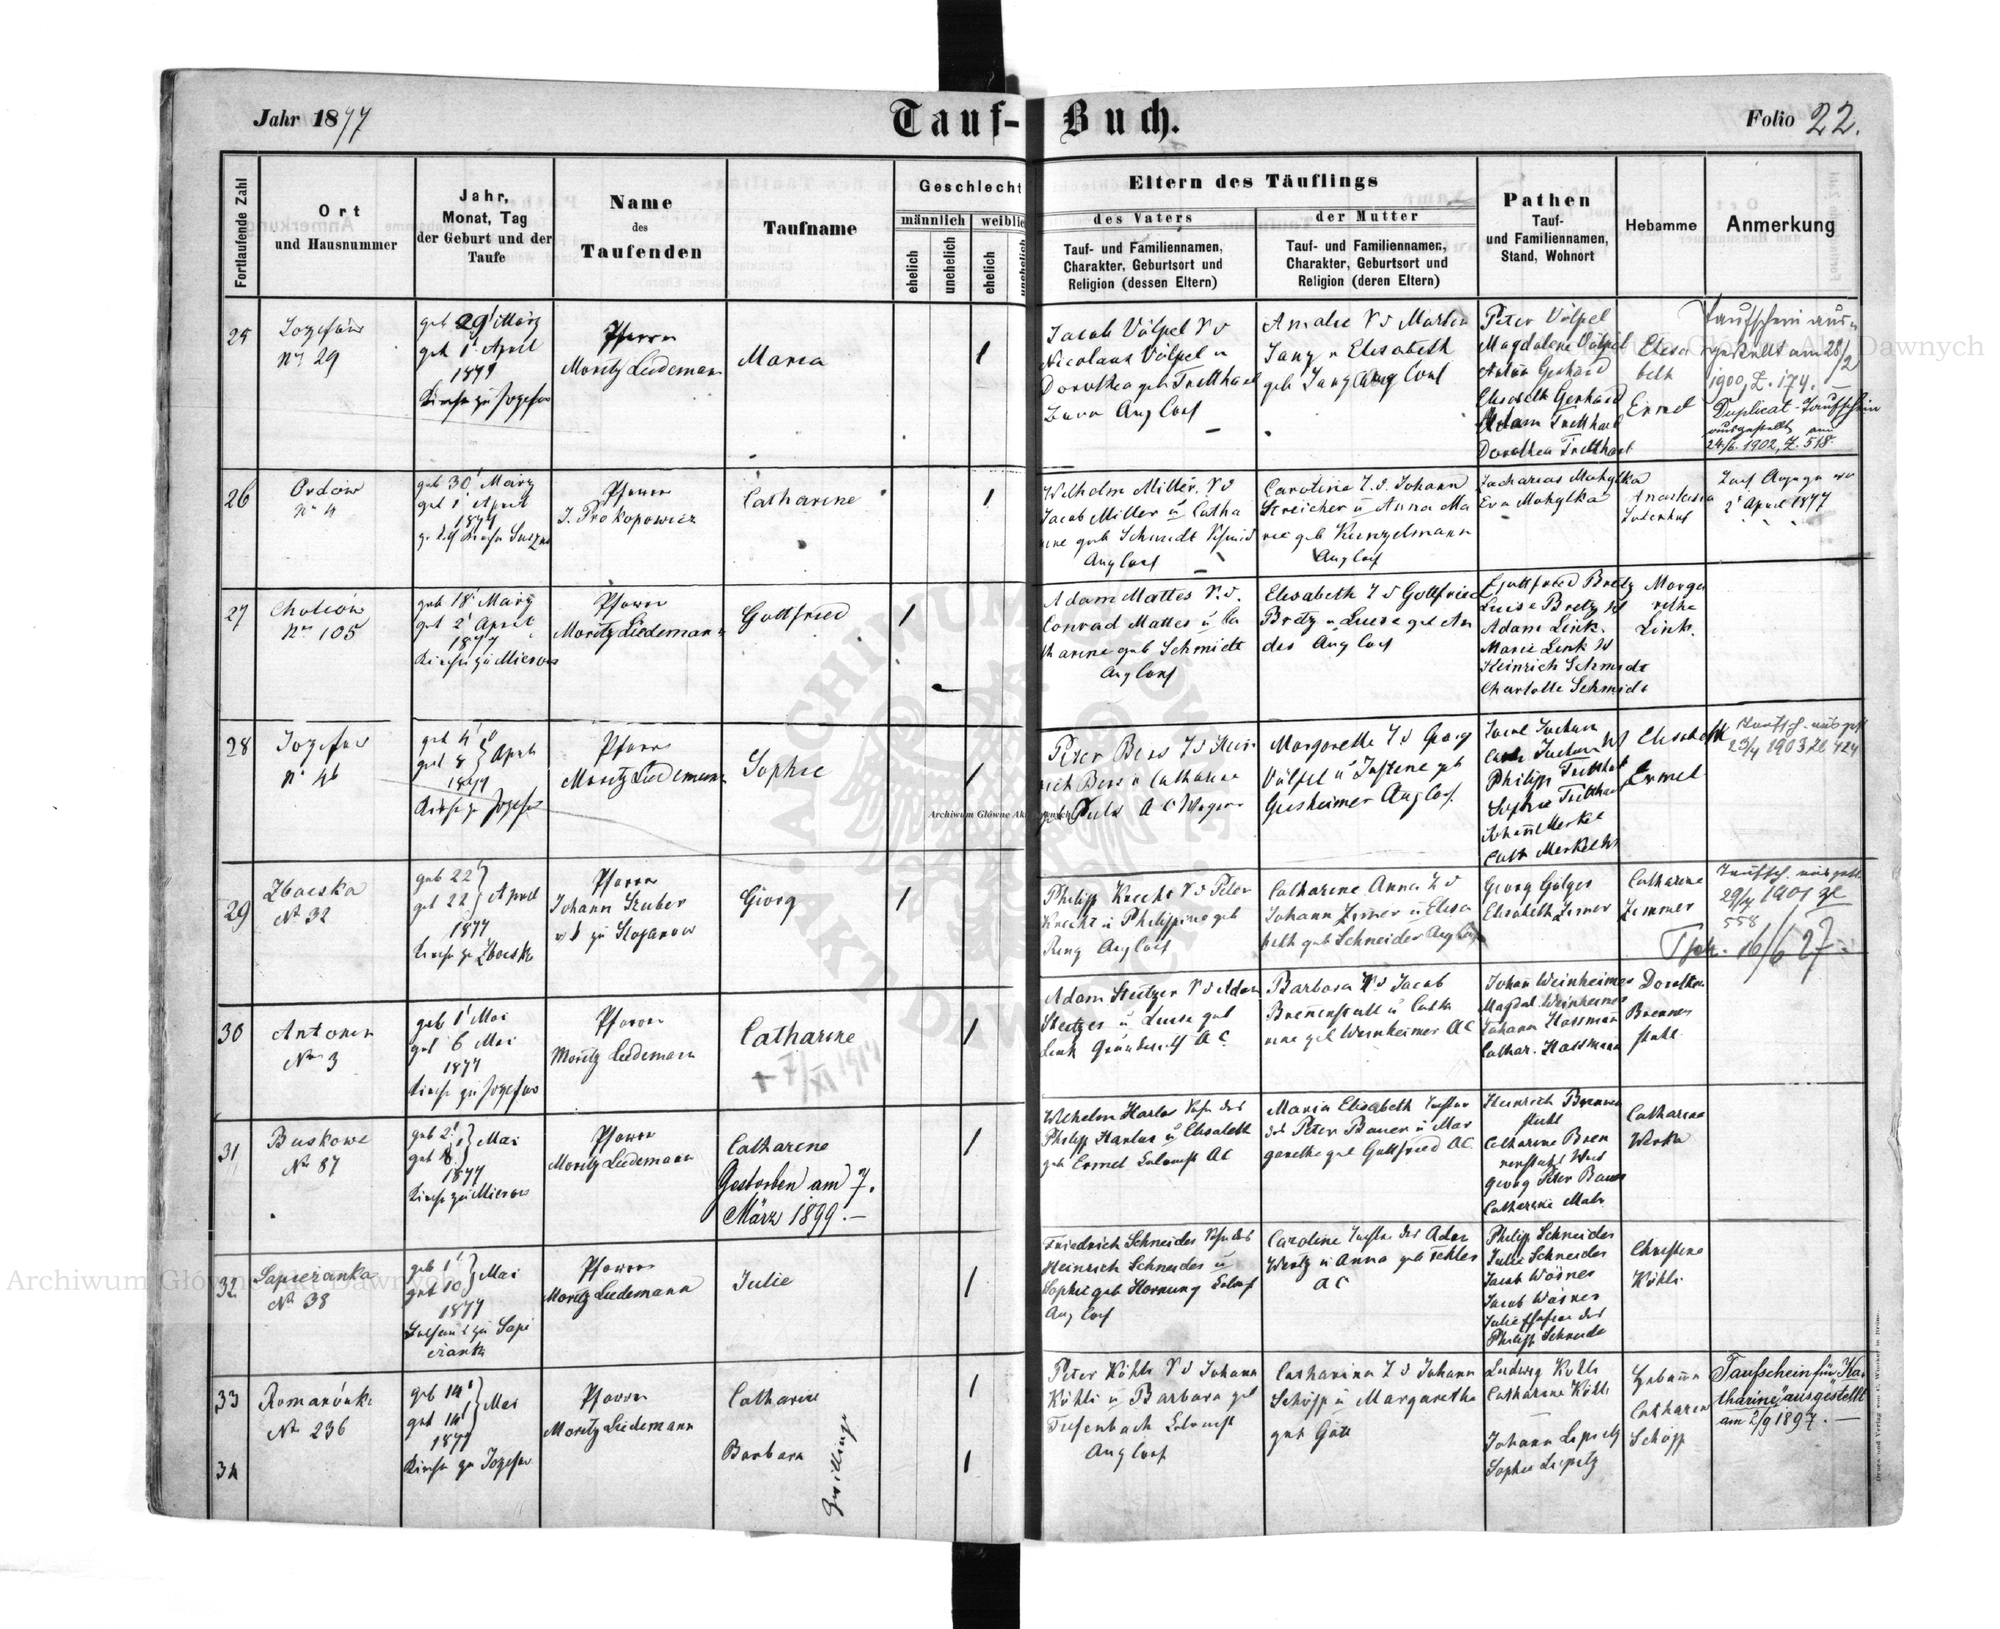 Jahr 1877
Tauf-Buch.
Folio 22.
Fortlaufende Zahl
Ort
und Hausnummer
Jahr,
Monat, Tag
der Geburt und der
Taufe
Name
des
Taufenden
Taufname
Geschlecht
männlich
weiblich
ehelich
unehelich
ehelich
unehelich
Eltern des Täuflings
des Vaters
Tauf- und Familiennamen,
Charakter, Geburtsort und
Religion (dessen Eltern)
der Mutter
Tauf- und Familiennamen,
Charakter, Geburtsort und
Religion (deren Eltern)
Pathen
Tauf-
und Familiennamen,
Stand, Wohnort
Hebamme
Anmerkung
25
Jozefów
Nr 29
geb 29 März
get 1 April
1877
Kirche zu Jozefow
Pfarrer
Moritz Liedemann
Maria
Jacob Völpel S d
Nicolaus Völpel u
Dorothea geb Tretthael
Augsconf
Amalie T d Martin
Jung u Elisabeth
geb Jung Augsconf
Peter Völpel
Magdalene Völpel
Anton Gerhard
Elisabeth Gerhard
Adam Tretthael
Dorothea Tretthael
Elisa
beth
Ermel
Taufschein aus-
gestellt am 28/2
1900, Z. 174.
Duplicat-Taufschein
ausgestellt am
24/6. 1902, Z. 518
26
Ordów
Nr 4
geb 30 März
get 1 April
1877
Pfarrer
J. Prokopowicz
Catharine
Wilhelm Miller S d
Jacob Miller u Catha
rine geb Schmidt
Augsconf
Caroline T d Johann
Streicher u Anna Ma
rie geb Kunzelmann
Augsconf
Zacharias Mohylka
Eva Mohylka
Anastasia
2 April 1877
27
Cholów
Nr 105
geb 18 März
get 2 April
1877
Kirche zu Mierow
Pfarrer
Moritz Liedemann
Gottfried
Adam Mattes S d
Conrad Mattes u Ca
tharine geb Schmidt
Augsconf
Elisabeth T d Gottfried
Bretz u Luise geb An
des Augsconf
Gottfried Bretz
Luise Bretz
Adam Link
Marie Link
Heinrich Schmidt
Charlotte Schmidt
Marga
retha
Link.
28
Jozefow
Nr 46
geb 4
get 8 April
1877
Kirche zu Jozefow
Pfarrer
Moritz Liedemann
Sophie
Peter Bess S d Hein
rich Bess u Catharine
Margarethe T d Georg
Völpel u Justine geb
Geisheimer Augsconf.
Philipp Tretthael
Sophie Tretthael
Johann Merkel
Cath Merkel
Elisabeth
Ermel
Taufsch. ausgest
29
Zboiska
Nr 32
geb 22
get 22 April
1877
Kirche zu Zboiska
Pfarrer
Johann Gruber
zu Stojanow
Georg
Philipp Knecht S d Peter
Knecht u Philippine geb
Ring Augsconf
Catharine Anna T d
Johann Zimer u Elisa
beth geb Schneider Augsconf
Georg Gölzer
Elisabeth Zimer
Catharine
Zimmer
Taufsch. ausgest
29/4 1901 Zl
558
16/6 27
30
Antonin
Nr 3
geb 1 Mai
get 6 Mai
1877
Kirche zu Jozefow
Pfarrer
Moritz Liedemann
Catharine
Adam Steitzer S d Adam
Steitzer u Luise geb
Link AC
Barbara T d Jacob
Brenenstuhl u Catha
rine geb Weinheimer AC
Johan Weinheimer
Magdal. Weinheimer
Johann Hassmann
Cathar. Hassmann
Dorothea
Brennen
stuhl
31
Buskowe
Nr 87
geb 2
get 8 Mai
1877
Kirche zu Mierow
Pfarrer
Moritz Liedemann
Catharine
Gestorben am 7.
März 1899.—
Wilhelm Harlos Sohn des
Philipp Harlos u Elisabeth
geb Ermel AC
Maria Elisabeth Tochter
des Peter Bauer u Mar
garethe geb Gottfried AC
Heinrich Brennen
stuhl
Catharine Bren
nenstuhl
Georg Peter Bauer
Catharine
32
Sapiezanka
Nr 38
geb 1
get 10 Mai
1877
zu Sapi
ezanka
Pfarrer
Moritz Liedemann
Julie
Friedrich Schneider Sohn des
Heinrich Schneider u
Sophie geb Hornung
Augsconf
Caroline Tochter des Adam
Wentz u Anna geb
AC
Philipp Schneider
Julie Schneider
Philipp Schneider
Christine
Köhli
33
Romanówka
Nr 236
geb 14
get 14 Mai
1877
Kirche zu Jozefow
Pfarrer
Moritz Liedemann
Catharine
Peter Köhli S d Johann
Köhli u Barbara geb
Tiefenbach
Augsconf
Catharina T d Johann
Schöpp u Margaretha
geb
Ludwig Köhli
Catharine Köhli
Johann Lipsitz
Sophie Lipsitz
Catharine
Schöpp
Taufschein für "Ka-
tharine" ausgestellt
am 2/9 1897.—
34
Barbara
Zwillinge
Archiwum Główne Akt Dawnych